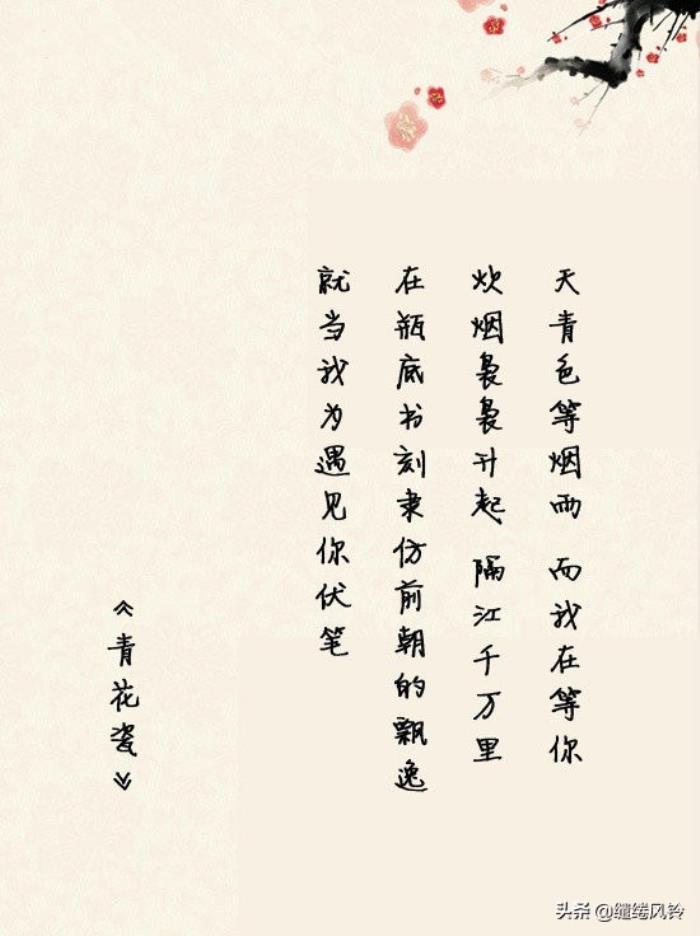 天青色等烟雨 而我在等你
炊烟袅袅升起 隔江千万里
在瓶底书刻隶仿前朝的飘逸
就当我为遇见你伏笔
《青花瓷》
头条 @缱绻风铃